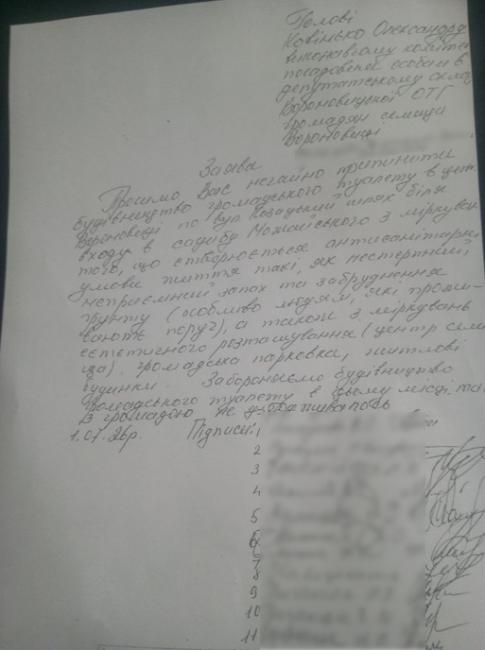 Голові
Ковінько Олександру
виконавчому комітет
посадовій особам в
депутатському склад
Вороновицької ОТГ
громадян селища
Вороновиці
Заява
Просимо Вас негайно припинити
будівництво громадського туалету в цент
Вороновиці по вул. Козацький шлях біля
входу в садибу Можайського з міркуван
того, що створюється антисанітарні
умови життя такі, як нестерпний,
неприємний запах та забруднення
грунту (особливо людям, які прожи-
вають поруч), а також з міркувань
естетичного розташування (центр сели
ща), громадська парковка, житлові
будинки. Забороняємо будівництво
громадського туалету в цьому місці та
з громадою не узгоджувалось
1.07.26р. Підписи: 1
2
3
4
5
6
7
8
9
10
11